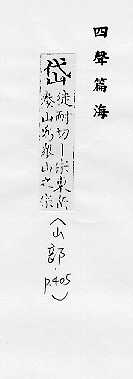 四聲篇海
岱
徒耐切丨宗東岳
泰山為衆山之宗
(山部. p.405)